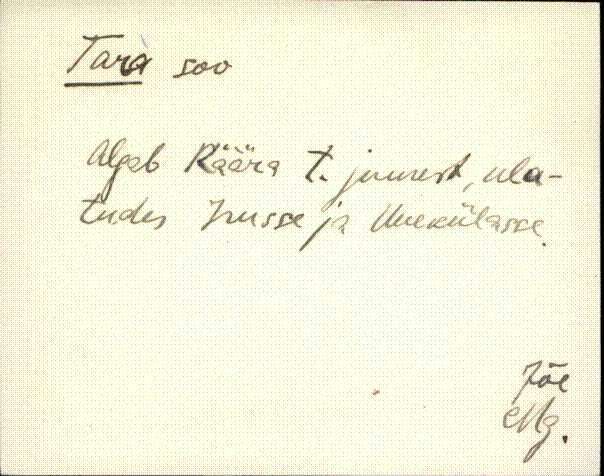 Tara soo
Algab Räära t. juurest, ula-
tudes Irusse ja Uuekülasse.
Jõe
Mg.